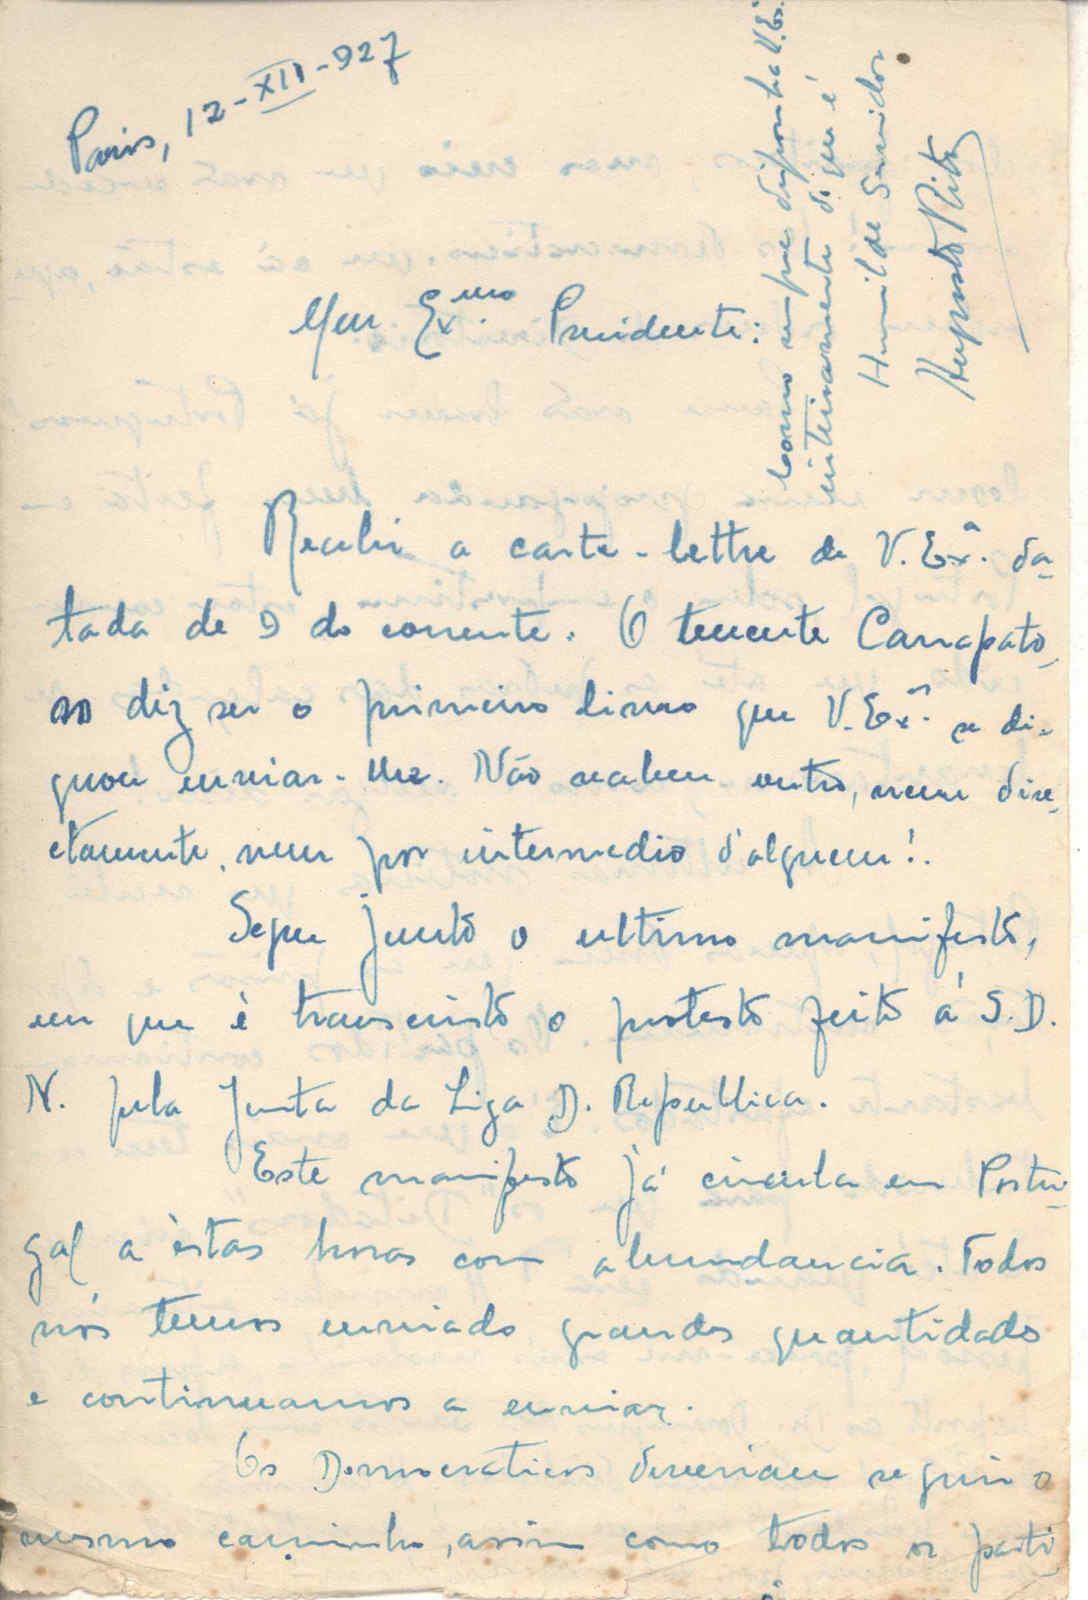 Paris, 12-XII-927
Meu Ex.mo Presidente:
Recebi a carte-lettre de V. Ex.ª da-
tada de 9 do corrente. O tenente Carrapato-
so diz ser o primeiro livro que V. Ex.ª se di-
gnou enviar-lhe. Não recebeu outro, nem dire-
ctamente, nem por intermedio d'alguem!.
Segue junto o ultimo manifesto,
em que é transcrito o protesto feito á S. D.
N. pela Junta da Liga D. Republica.
Este manifesto já circula em Portu-
gal a èstas horas com abundancia. Todos
nós temos enviado grandes quantidades
e continuamos a enviar.
Os Democraticos deveriam seguir o
mesmo caminho, assim como todos os parti
Como sempre disponha V. Ex.
inteiramente do que é
Humilde Servidor
Augusto Rito